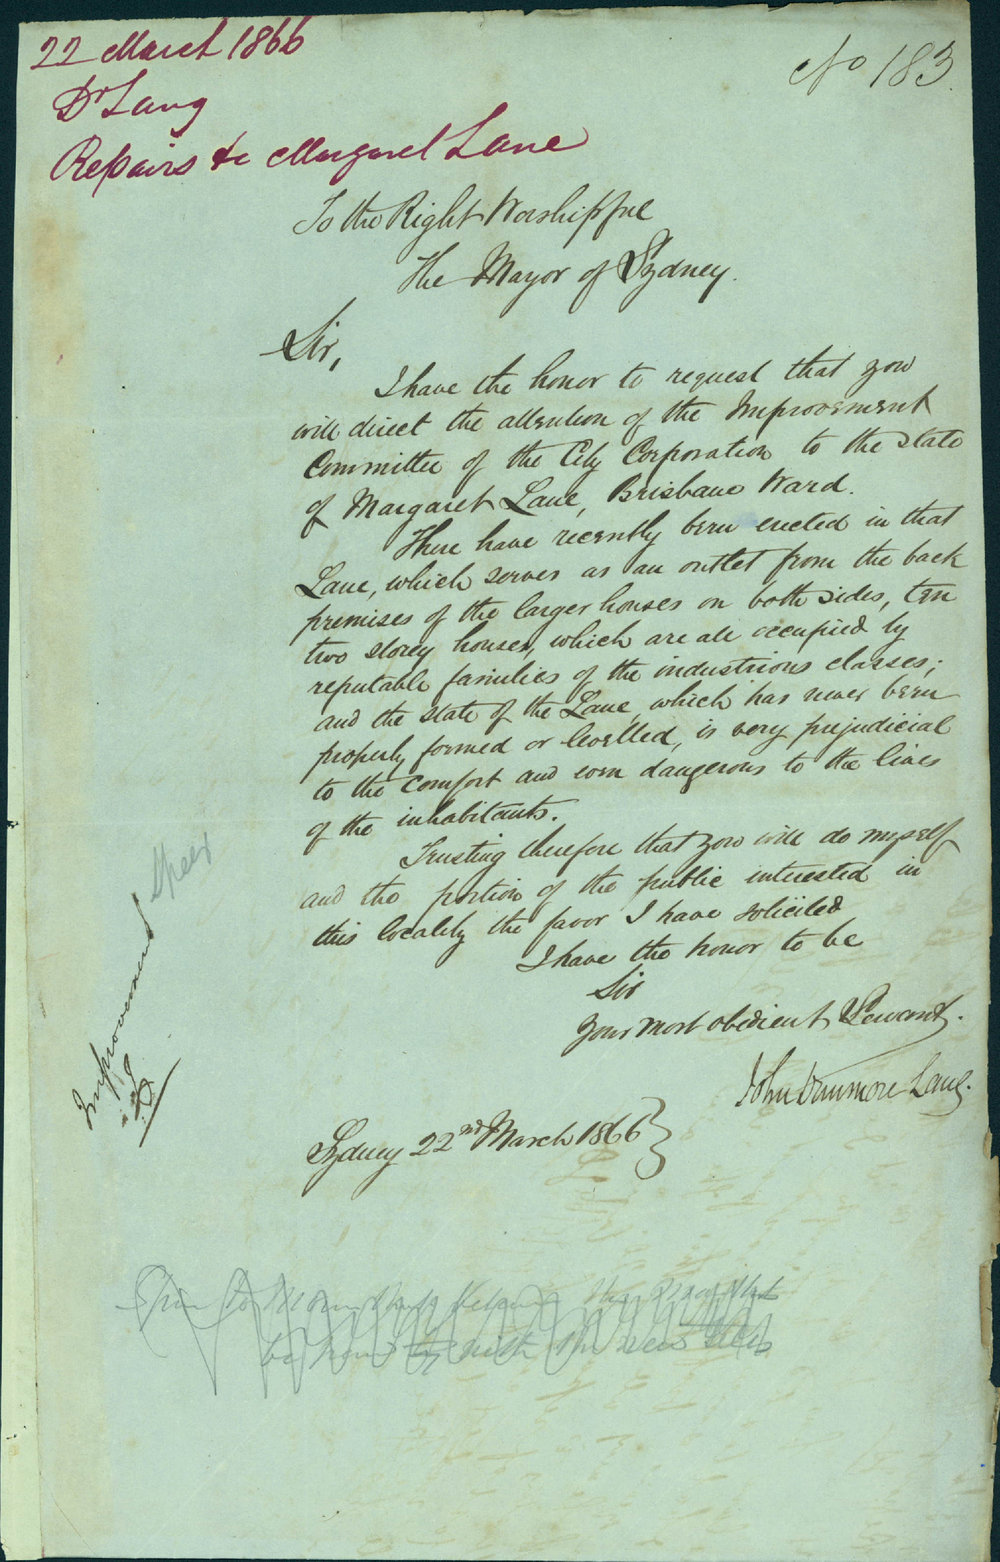 22 March 1866
No 183.
Dr Lang
Repairs &c Margaret Lane
To the Right Worshipful
The Mayor of Sydney.
Sir,
I have the honor to request that you
will direct the attention of the Improvement
Committee of the City Corporation to the state
of Margaret Lane, Brisbane Ward.
There have recently been erected in that
Lane, which serves as an outlet from the back
premises of the larger houses on both sides, ten
two storey houses, which are all occupied by
reputable families of the industrious classes;
and the state of the Lane, which has never been
properly formed or levelled, is very prejudicial
to the comfort and even dangerous to the lives
of the inhabitants.
Trusting therefore that you will do myself
and the portion of the public interested in
this locality the favor I have solicited
I have the honor to be
Sir
Your most obedient Servant.
John Dunmore Lang.
Sydney 22nd March 1866
Improvement